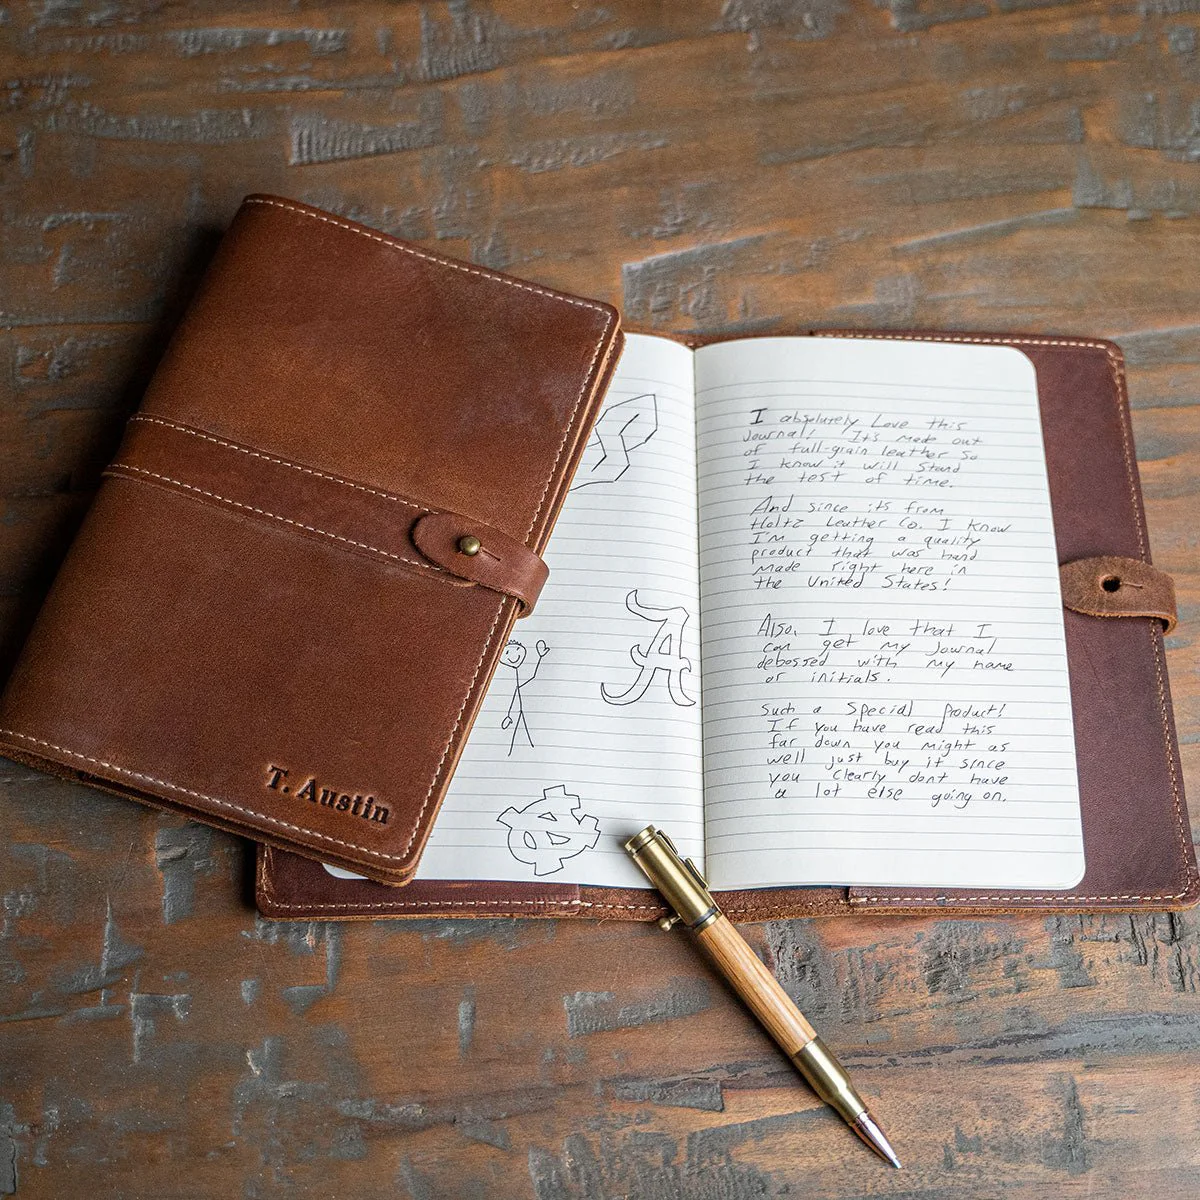 T. Austin
I absolutely Love this
Journal! It's made out
of full-grain leather So
I know it will Stand
the test of time.
And since its from
Holtz Leather Co. I Know
I'm getting a quality
product that was hand
made right here in
the United States!
Also, I love that I
can get my Journal
debossed with my name
or initials.
Such a Special Product!
If you have read this
far down you might as
well just buy it since
you clearly dont have
a lot else going on.
A